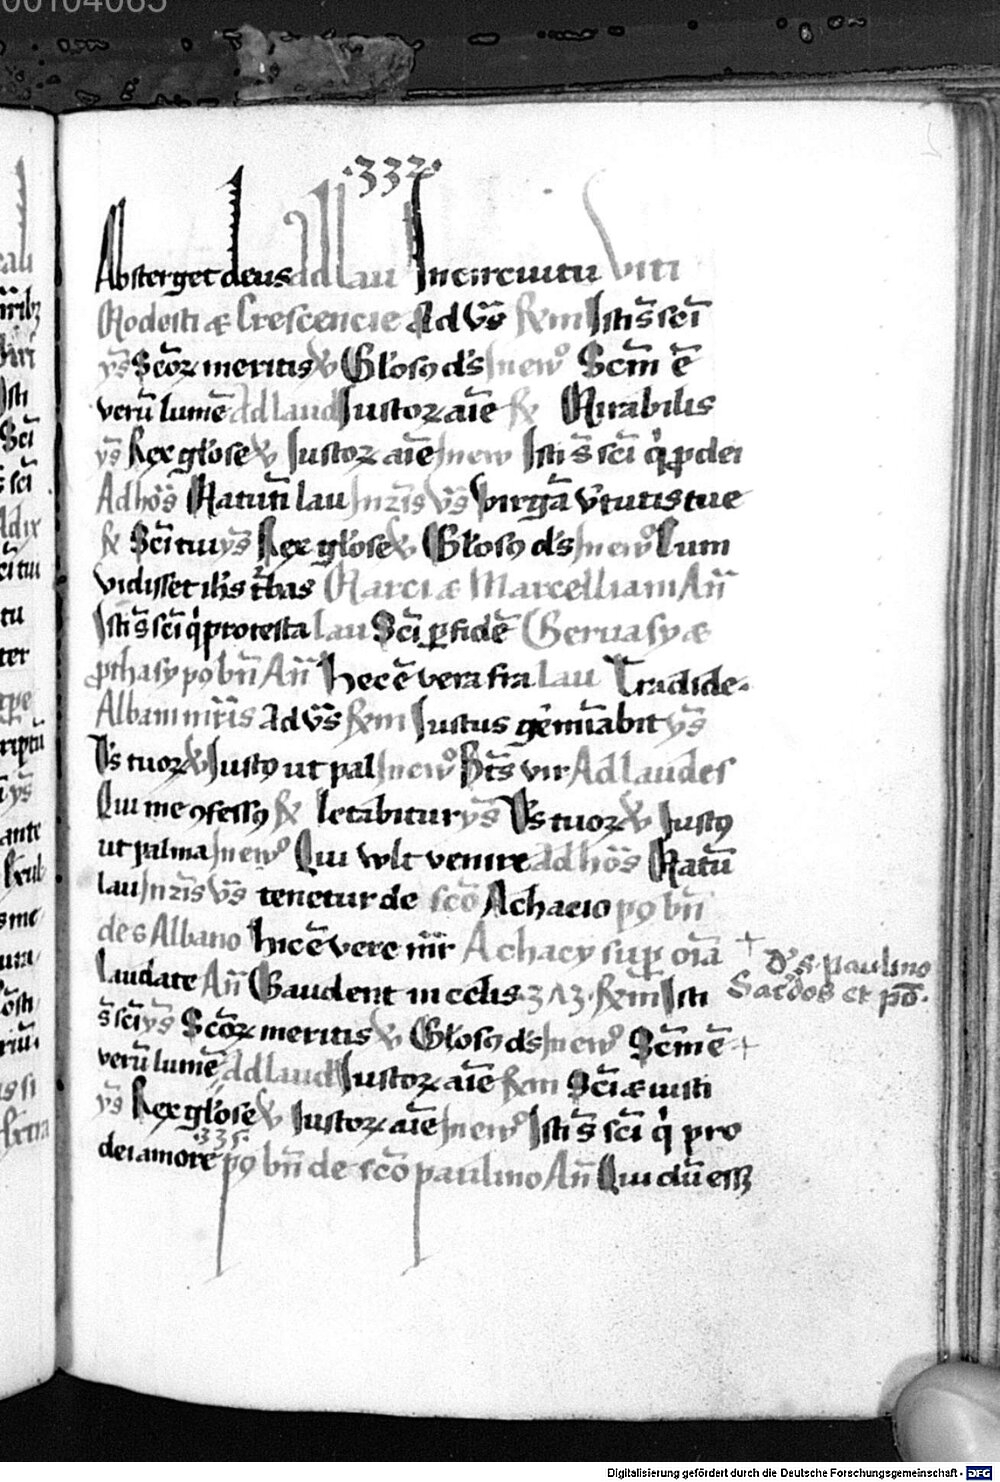 00104065
·332·
Absterget deus ad lau In circuitu Viti
Modesti æ Crescencie Ad v̄s R̄m Isti s̄ sc̄i
ȳs Sc̄oꝝ meritis & Gl'osꝯ ds̄ In ewº Sc̄m ē
verū lumē ad laud Iustoꝝ aīe R Mirabilis
ȳs Rex gl'ose & Iustoꝝ aīe In ew Isti s̄ sc̄i q̇ ꝓ dei
Ad hōs Natūti lau In ... v̄s Virgā v̄tutis tue
R Sc̄i tui ȳs Rex gl'ose & Gl'osꝯ ds̄ In ewº Cum
vidisset ihs t̄bas Marci æ Marcelliani An̄
Isti s̄ sc̄i q̇ ꝓ testa lau Sc̄i ꝑ fidē Geruasy æ
ꝓthasy pꝯ bn̄ An̄ Hec ē vera fra lau Tradide.
Albani mr̄is Ad v̄s R̄m Iustus gēmīabit ȳs
Ds̄ tuoꝝ & Iustꝯ ut pal In ewº Bt̄s vir Ad laudes
Qui me ꝯfessꝯ R letabitur ȳs Ds̄ tuoꝝ & Iustꝯ
ut palma In ewº Qui wlt venire ad hōs Natū
lau In ... v̄s tenetur de sc̄o Achacio pꝯ bn̄
des Albano Hic ē vere mr̄ Achacy suꝑ oīa +
Laudate An̄ Gaudent in celis ·313· R̄m Isti
s̄ sc̄i ȳs Sc̄oꝝ meritis & Gl'osꝯ ds̄ In ewº Sc̄m ē +
verū lumē ad laud Iustoꝝ aīe R̄m Sc̄i æ iusti
ȳs Rex gl'ose & Iustoꝝ aīe In ewº Isti s̄ sc̄i q̇ pro
dei amore ·335· pꝯ bn̄ de sc̄o paulino An̄ Qui dū essꝫ
D' S. Paulino
Sac̄dos et pō.
Digitalisierung gefördert durch die Deutsche Forschungsgemeinschaft - DFG